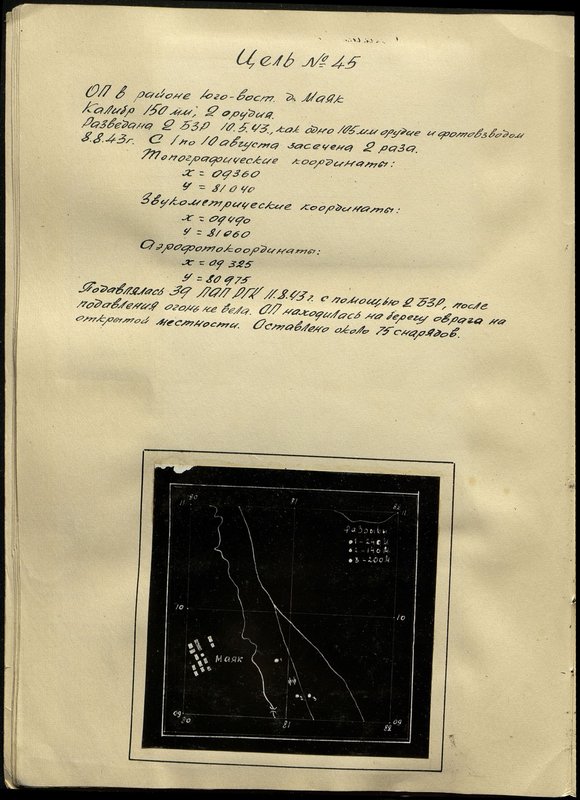 Цель № 45
ОП в районе юго-вост. д. Маяк
Калибр 150 мм; 2 орудия.
Разведана 2 БЗР 10.5.43, как одно 105 мм орудие и фотовзводом
8.8.43 г. С 1 по 10 августа засечена 2 раза.
Топографические координаты:
x = 09360
y = 81040
Звукометрические координаты:
x = 09490
y = 81060
Аэрофотокоординаты:
x = 09325
y = 80975
Подавлялась 39 ПАП РГК 11.8.43 г. с помощью 2 БЗР, после
подавления огонь не вела. ОП находилась на берегу оврага на
открытой местности. Оставлено около 75 снарядов.
80 81 82
11 11
Разрывы
1-240м
2-140м
3-200м
10 10
Маяк
1
2 3
09 09
80 81 82